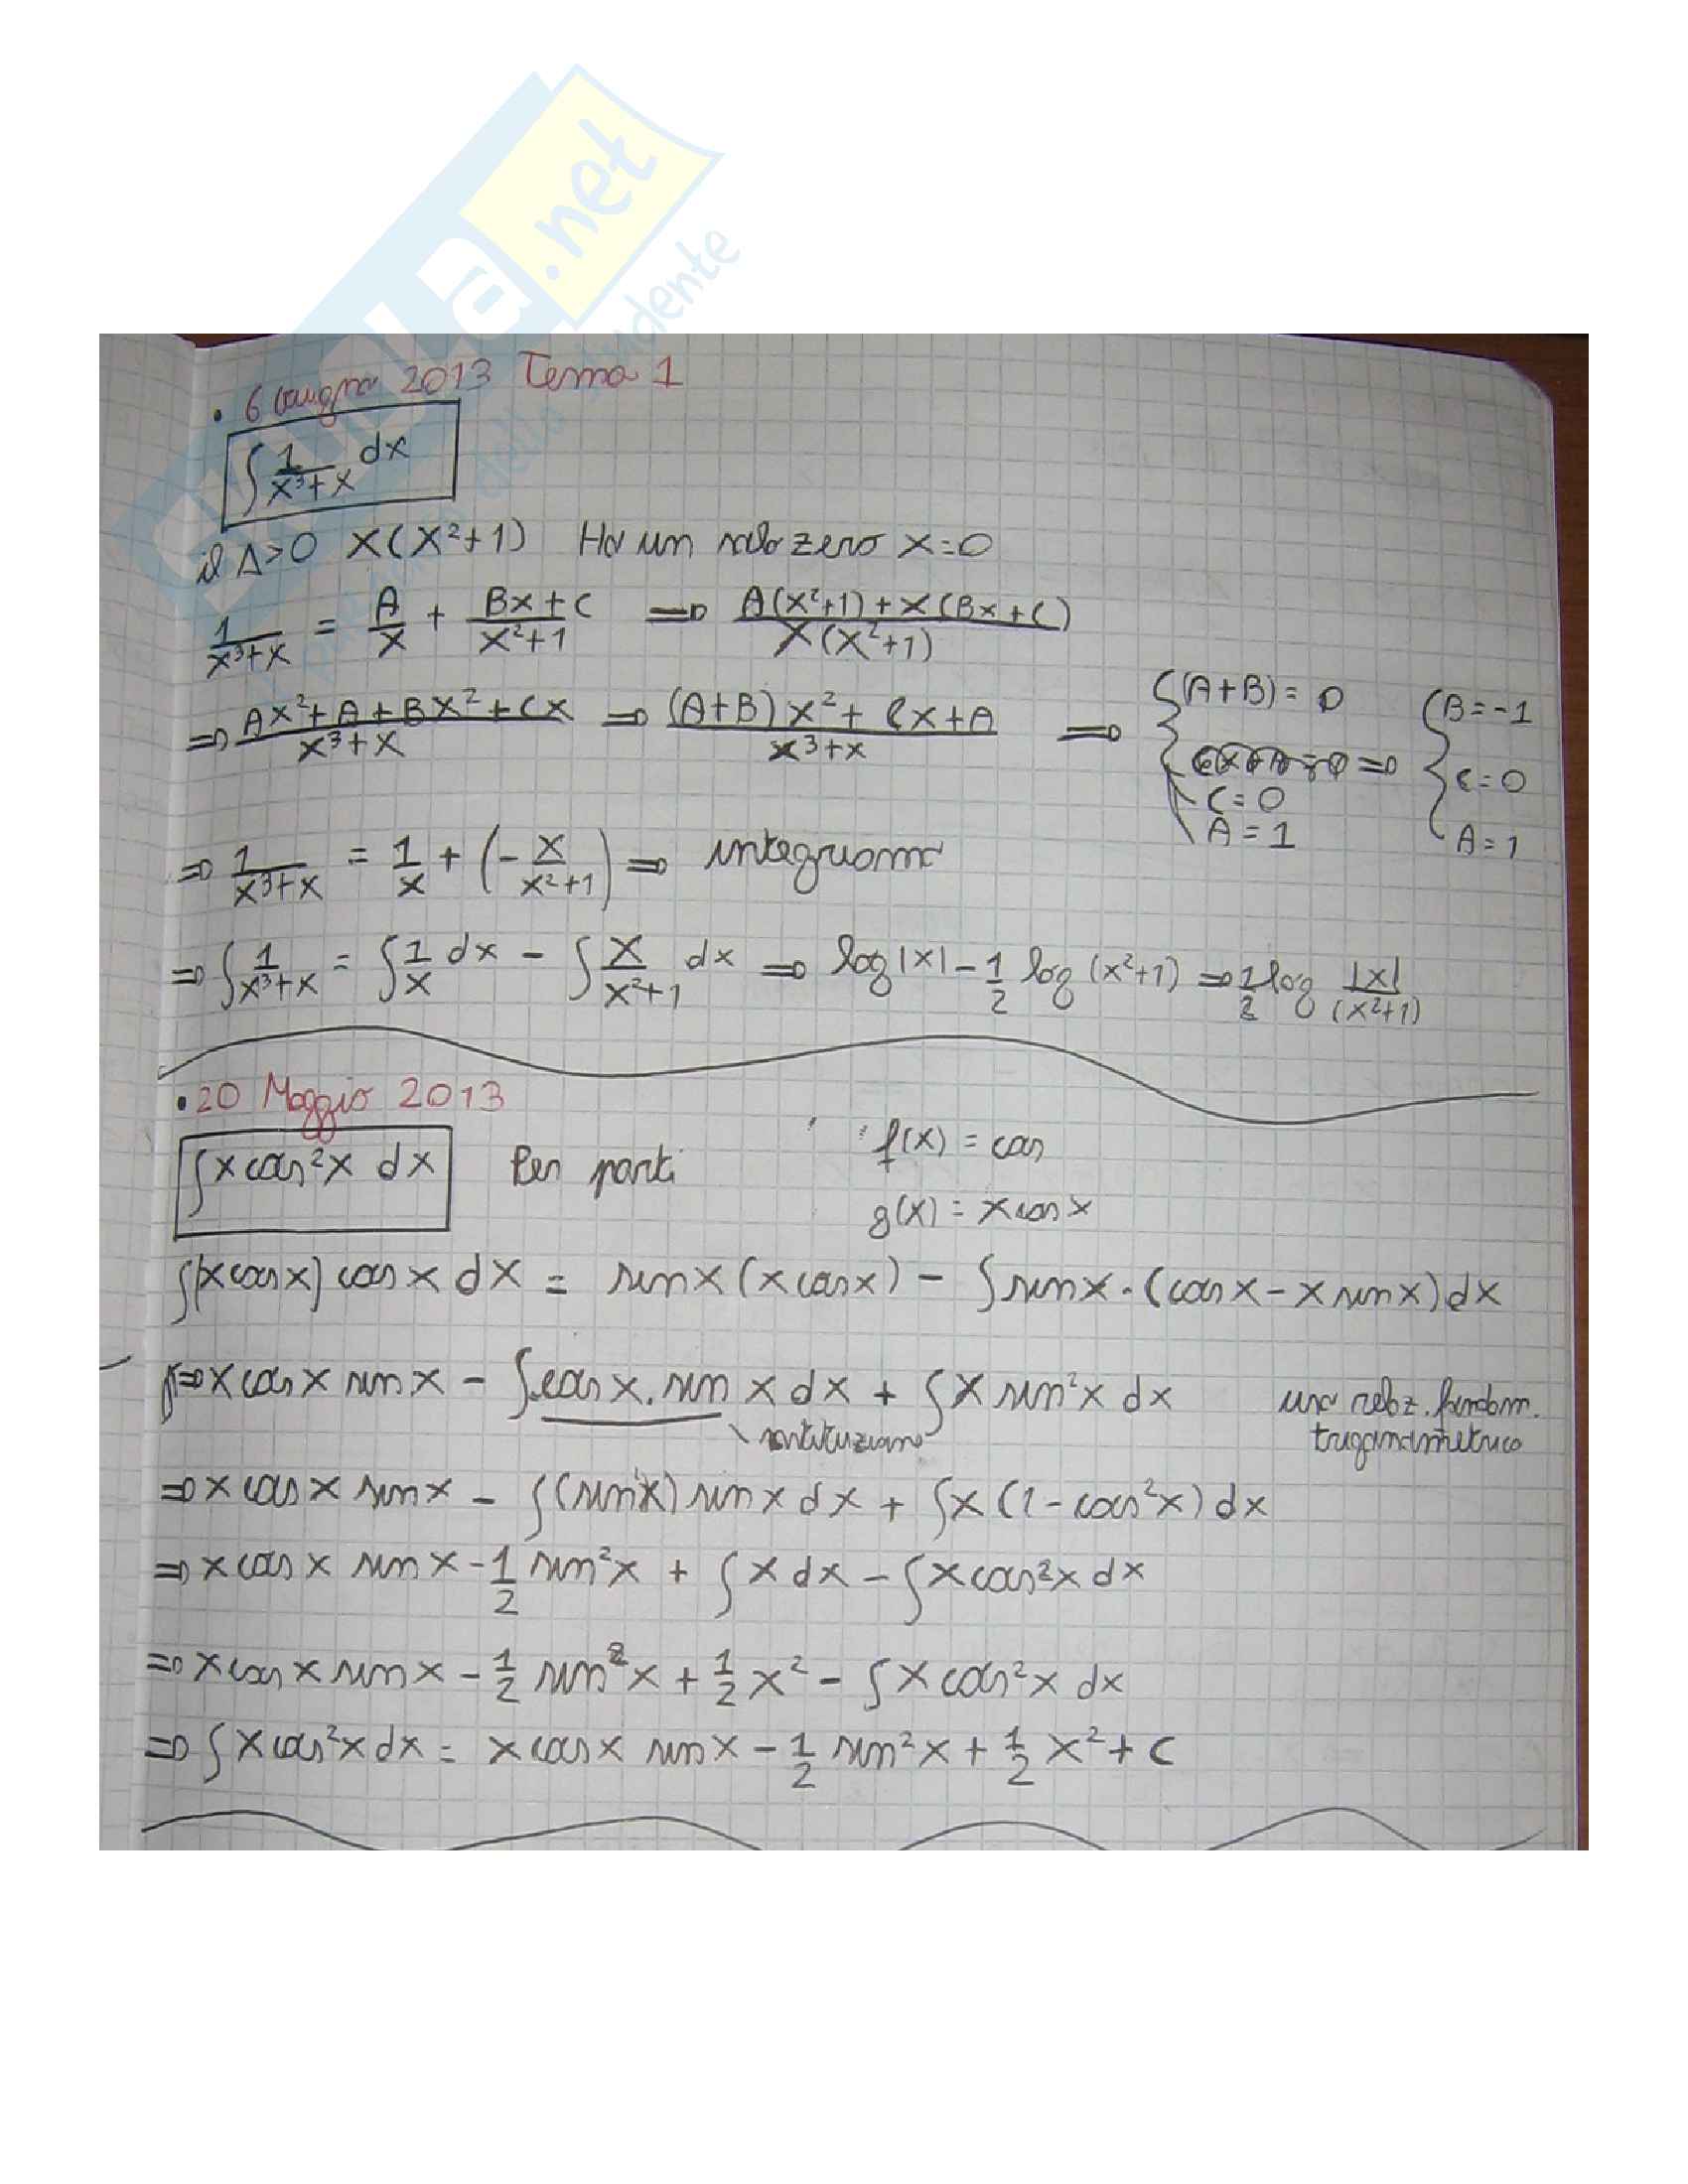 • 6 Giugno 2013 Tema 1
∫ 1/(x³+x) dx
il Δ>0 x(x²+1) Ha un solo zero x=0
1/(x³+x) = A/x + (Bx+C)/(x²+1) ⇒ (A(x²+1)+x(Bx+C))/(x(x²+1))
⇒ (Ax²+A+Bx²+Cx)/(x³+x) ⇒ ((A+B)x²+Cx+A)/(x³+x) ⇒ { (A+B)=0 C=0 A=1 ⇒ { B=-1 C=0 A=1
⇒ 1/(x³+x) = 1/x + (-x/(x²+1)) ⇒ integriamo
⇒ ∫ 1/(x³+x) = ∫ 1/x dx - ∫ x/(x²+1) dx ⇒ log|x| - 1/2 log(x²+1) ⇒ 1/2 log |x|/(x²+1)
• 20 Maggio 2013
∫ x cos²x dx Per parti f(x) = cos
g(x) = x cos x
∫(x cos x) cos x dx = sin x (x cos x) - ∫ sin x · (cos x - x sin x) dx
⇒ x cos x sin x - ∫ cos x · sin x dx + ∫ x sin²x dx uso relaz. fondam.
sostituzione trigonometrica
⇒ x cos x sin x - ∫ (sin x)' sin x dx + ∫ x (1 - cos²x) dx
⇒ x cos x sin x - 1/2 sin²x + ∫ x dx - ∫ x cos²x dx
⇒ x cos x sin x - 1/2 sin²x + 1/2 x² - ∫ x cos²x dx
⇒ ∫ x cos²x dx = x cos x sin x - 1/2 sin²x + 1/2 x² + C